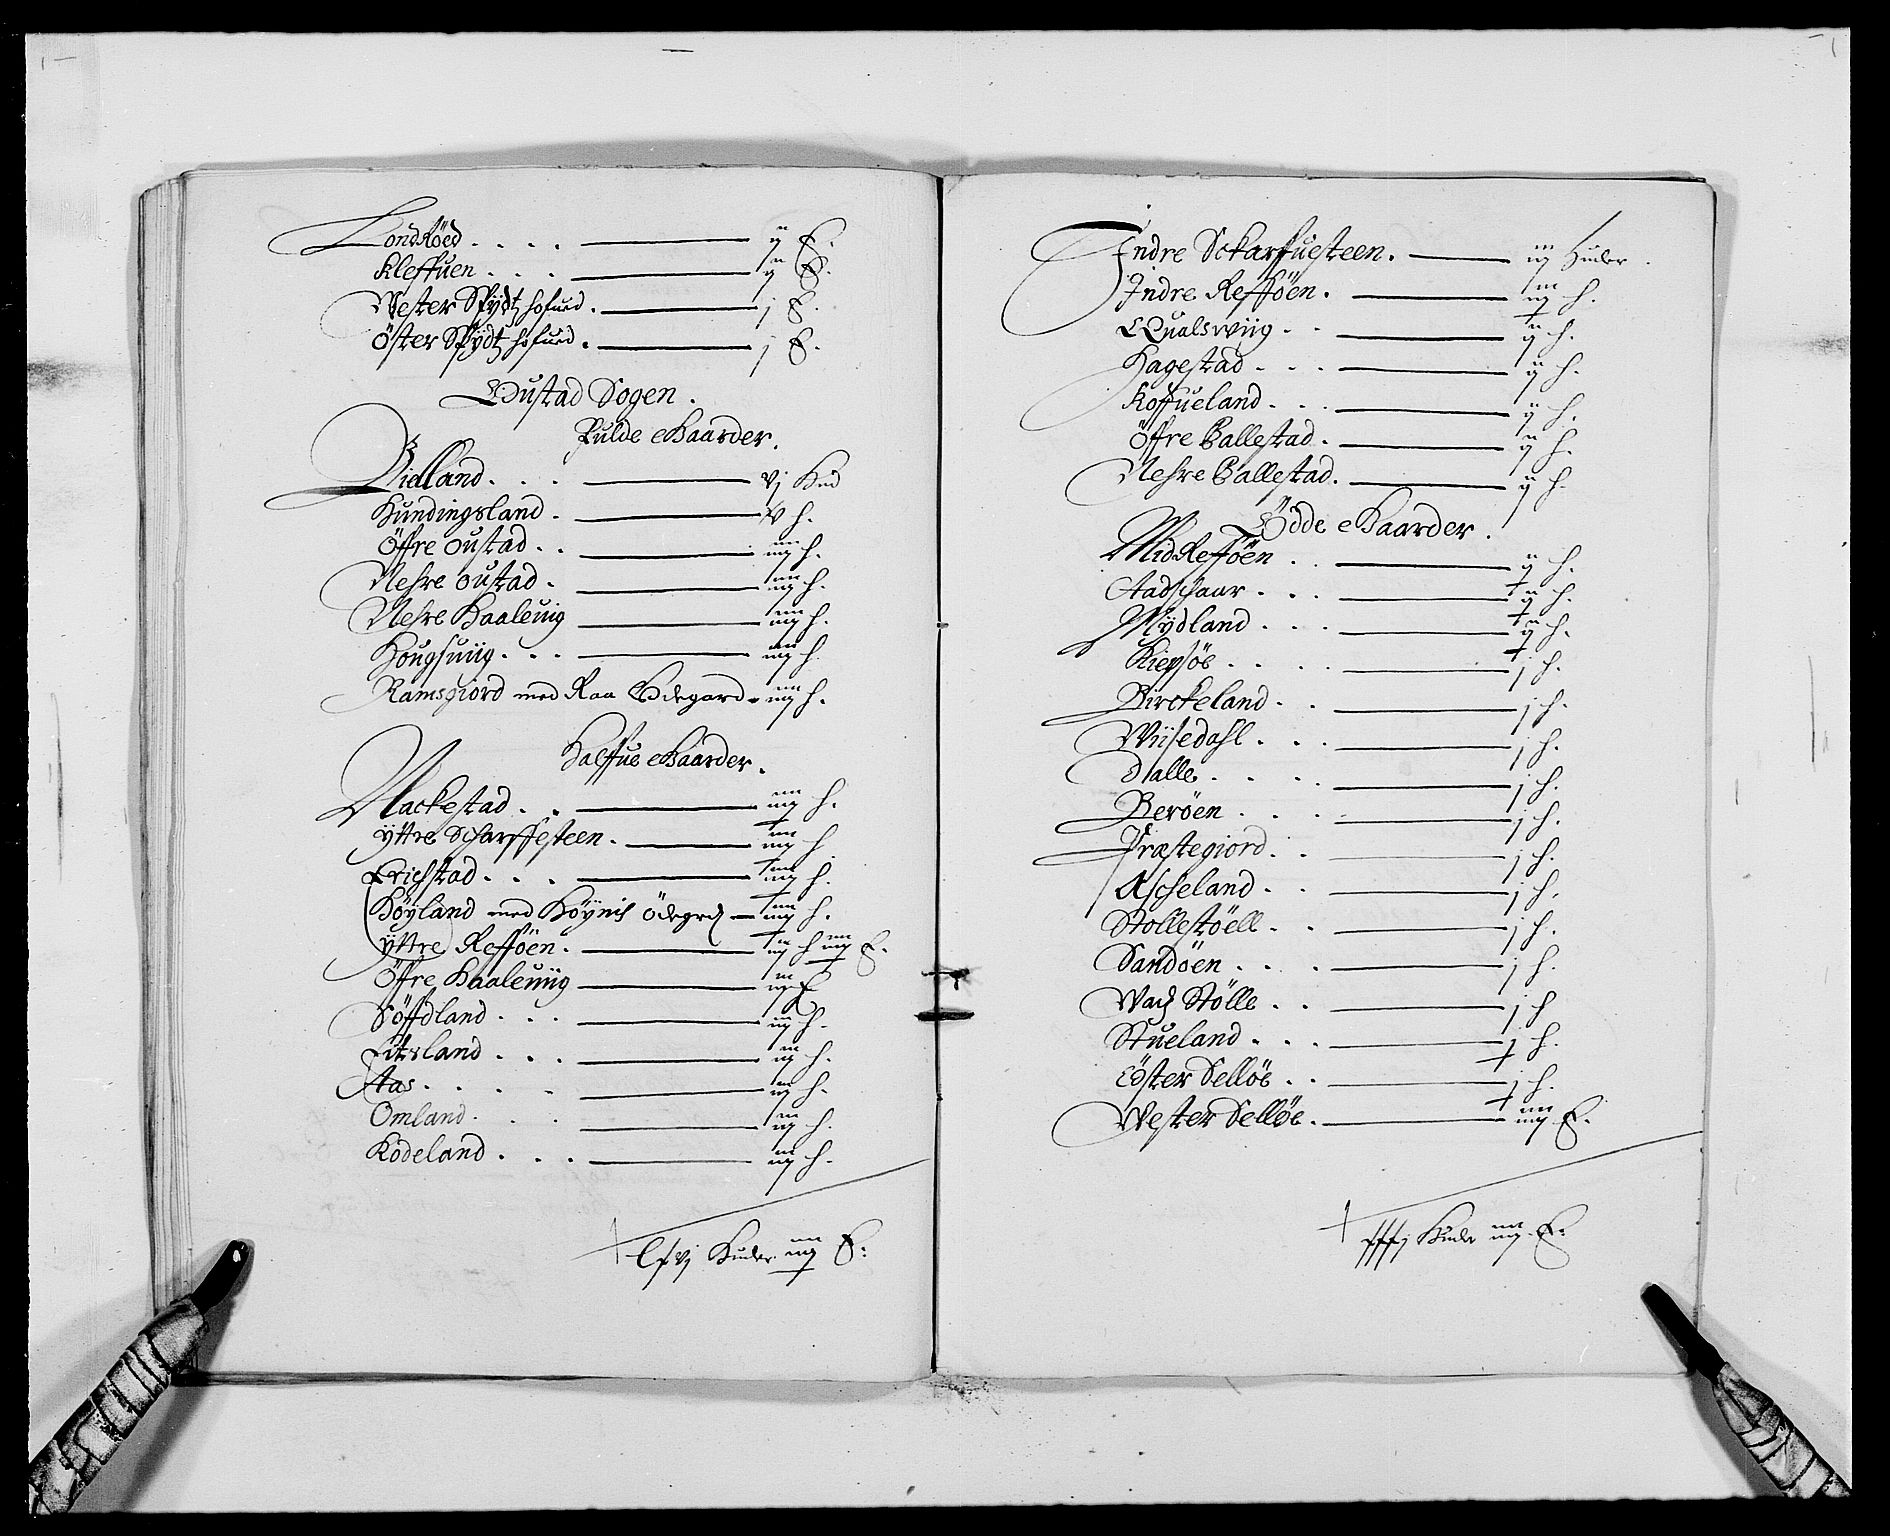 Londröed . . . . ij E.
Kleffuen . . . ij E.
Wester Spydt hofued . j E.
Öster Spydt hofued . j E.
Oustad Sogen .
Fulde Gaarder .
Birland . . . vj Hud
Hundingsland . v h.
Öffre Oustad . . iiij h.
Nehre Oustad . iiij h.
Nehre Haaleuig iiij h.
Hougsuiig . . . iiij h
Ramsgiord med Raa Ödegard . iiij h.
Halffue Gaarder .
Nackestad . . iiij h.
Yttre Scharffesteen . iiij h
Erichstad . . . iiij h.
Höyland med Höynis Ödegrd iiij h.
Yttre Refföen . iij h iiij E.
Öffre Haaleuiig iij E
Söffdland . . . iij h.
Eitsland . . . iij h.
Aas . . . . iij h.
Omland . . . iij h.
Kodeland . . . iij h.
lxvj Huder iiij E:
Indre Sckarffuesteen . iij Huder .
Indre Refföen . iij h.
Qualswiig . . ij h.
Hagestad . . . ij h.
Koffueland . . . ij h.
Öffre Ballestad . ij h.
Nehre Ballestad . ij h.
Ödde Gaarder .
Mid Refföen . . ij h.
Aadschaar . . . ij h.
Mydland . . . ij h.
Kiepsöe . . . . j h.
Birckeland . . j h.
Wiisedahl . . . j h.
Dalle . . . . j h.
Beröen . . . . j h.
Præstegiord . . j h.
Ascheland . . j h.
Stollestöell . . j h.
Sandöen . . . . j h.
Wach Stölle . . j h
Stueland . . . j h.
Öster Sellöe . . j h.
Wester Sellöe . iiij E.
xxxj Huder iiij E: